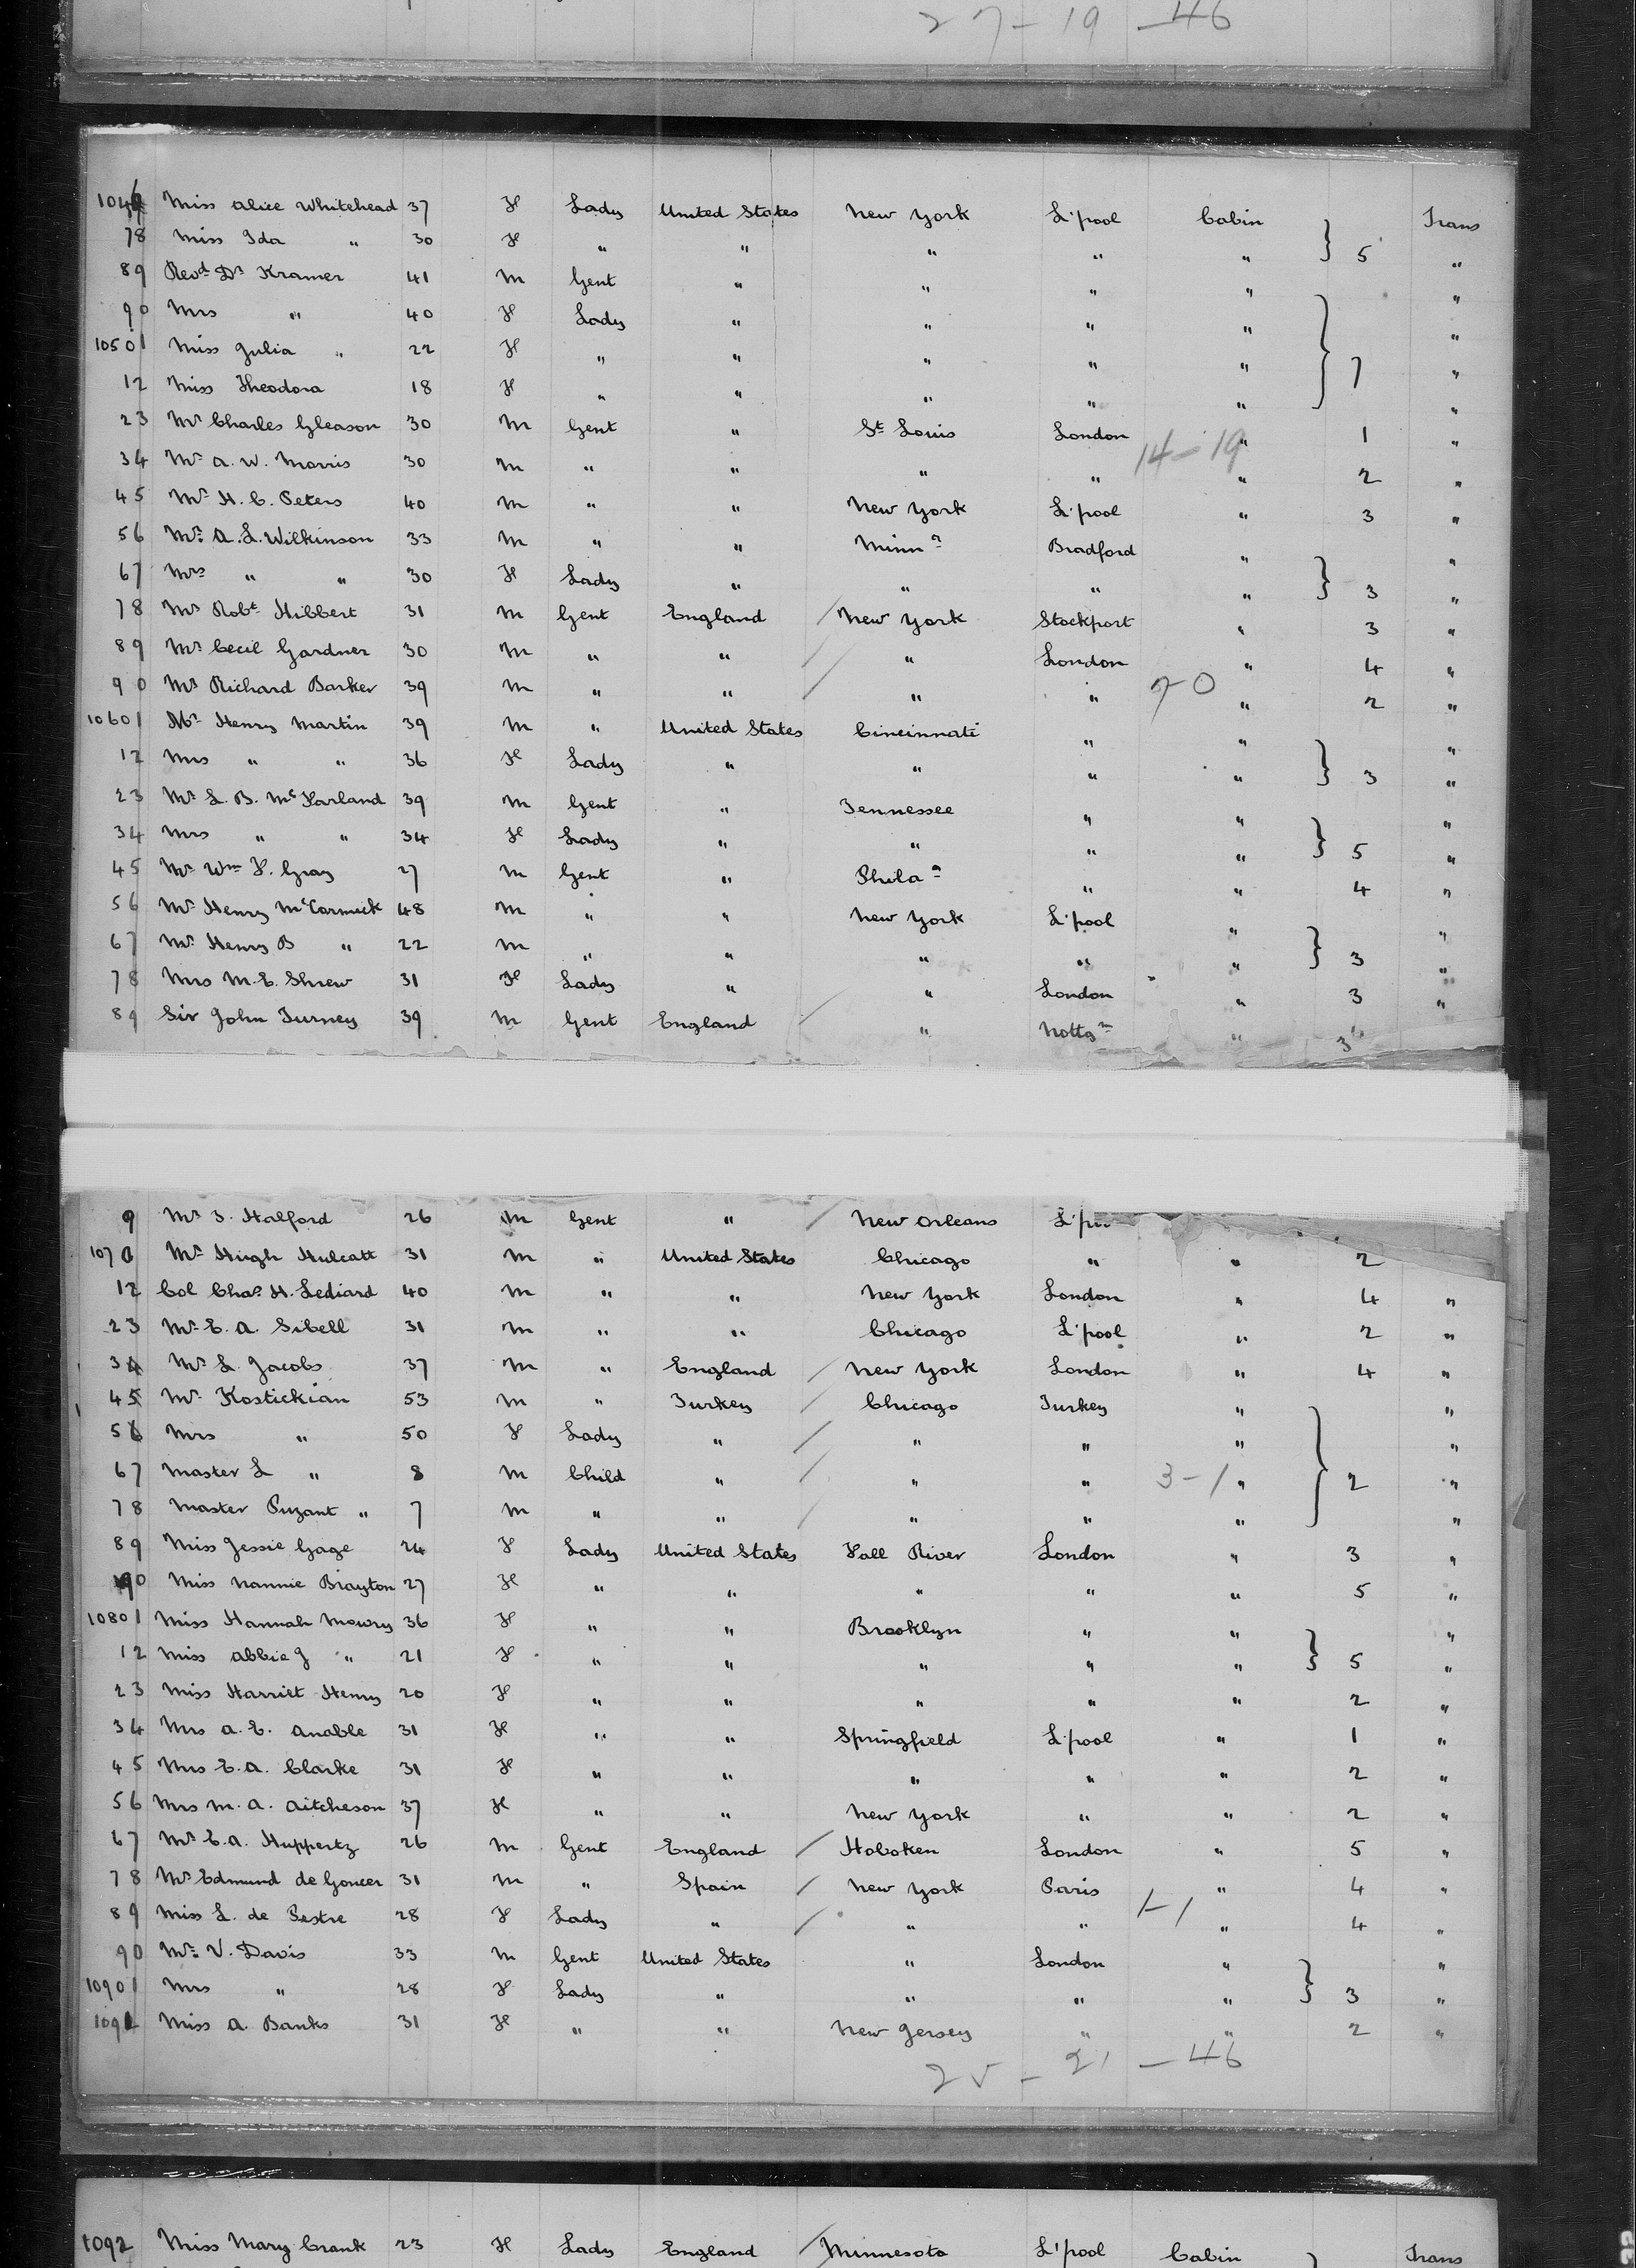 27-19-46
1046 Miss Alice Whitehead 37 F Lady United States New York L'pool Cabin Trans
78 Miss Ida " 30 F " " " " " } 5 "
89 Revd Dr Kramer 41 M Gent " " " " "
90 Mrs " 40 F Lady " " " " "
10501 Miss Julia " 22 F " " " " " "
12 Miss Theodora 18 F " " " " " } 7 "
23 Mr Charles Gleason 30 M Gent " St Louis London " 1 "
14-19
34 Mr A. W. Morris 30 M " " " " " 2 "
45 Mr H. C. Peters 40 M " " New York L'pool " 3 "
56 Mr A. L. Wilkinson 33 M " " Minna Bradford " "
67 Mrs " " 30 F Lady " " " " } 3 "
78 Mr Robt Hibbert 31 M Gent England / New York Stockport " 3 "
89 Mr Cecil Gardner 30 M " " / " London " 4 "
90 Mr Richard Barker 39 M " " / " " 7-0 " 2 "
10601 Mr Henry Martin 39 M " United States Cincinnati " " "
12 Mrs " " 36 F Lady " " " " } 3 "
23 Mr L. B. McFarland 39 M Gent " Tennessee " " "
34 Mrs " " 34 F Lady " " " " } 5 "
45 Mr Wm F. Gray 27 M Gent " Phila " " 4 "
56 Mr Henry McCormick 48 M " " New York L'pool " "
67 Mr Henry B " 22 M " " " " " } 3 "
78 Mrs M. E. Shrew 31 F Lady " " London " 3 "
89 Sir John Turney 39 M Gent England / " Nottgm " 3
9 Mr S. Halford 26 M Gent " / New Orleans
1070 Mr Hugh Hulcatt 31 M " United States Chicago " " 2
12 Col Chas H. Lediard 40 M " " New York London " 4 "
23 Mr E. A. Sibell 31 M " " Chicago L'pool " 2 "
34 Mr L. Jacobs 37 M " England / New York London " 4 "
45 Mr Kostickian 53 M " Turkey / Chicago Turkey " "
56 Mrs " 50 F Lady " / " " " "
67 Master L " 8 M Child " / " " 3-1 " } 2 "
78 Master Puzant " 7 M " " / " " " "
89 Miss Jessie Gage 24 F Lady United States Fall River London " 3 "
90 Miss Nannie Brayton 27 F " " " " " 5 "
10801 Miss Hannah Mowry 36 F " " Brooklyn " " "
12 Miss Abbie J " 21 F " " " " " } 5 "
23 Miss Harriet Henry 20 F " " " " " 2 "
34 Mrs A. E. Anable 31 F " " Springfield L'pool " 1 "
45 Mrs E. A. Clarke 31 F " " " " " 2 "
56 Mrs M. A. Aitcheson 37 F " " New York " " 2 "
67 Mr E. A. Huppertz 26 M Gent England / Hoboken London " 5 "
78 Mr Edmund de Goncer 31 M " Spain / New York Paris " 4 "
89 Miss L. de Pestre 28 F Lady " / " " 1-1 " 4 "
90 Mr V. Davis 33 M Gent United States " London " "
10901 Mrs " 28 F Lady " " " " } 3 "
1091 Miss A. Banks 31 F " " New Jersey " " 2 "
25-21-46
1092 Miss Mary Crank 23 F Lady England / Minnesota L'pool Cabin Trans